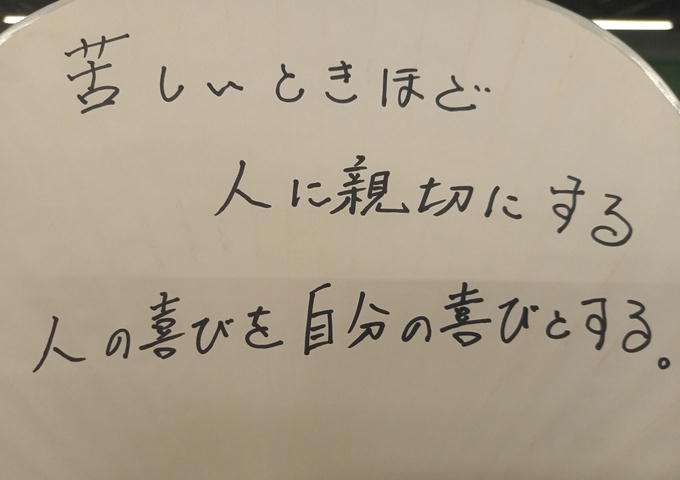 苦しいときほど
人に親切にする
人の喜びを自分の喜びとする。